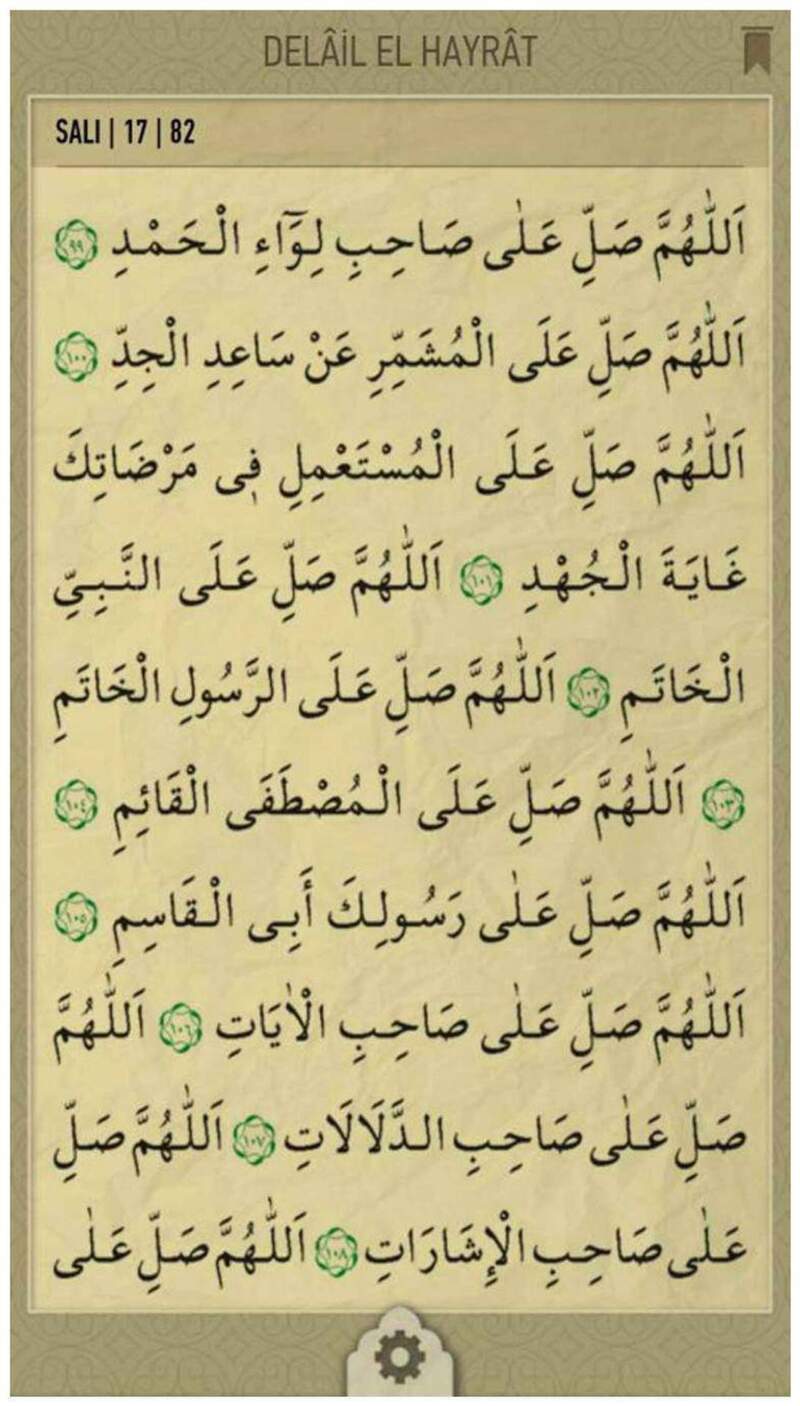 DELÂİL EL HAYRÂT
SALI | 17 | 82
اَللّٰهُمَّ صَلِّ عَلٰى صَاحِبِ لِوَٓاءِ الْحَمْدِ ٩٩
اَللّٰهُمَّ صَلِّ عَلَى الْمُشَمِّرِ عَنْ سَاعِدِ الْجِدِّ ١٠٠
اَللّٰهُمَّ صَلِّ عَلَى الْمُسْتَعْمِلِ فِى مَرْضَاتِكَ
غَايَةَ الْجُهْدِ ١٠١ اَللّٰهُمَّ صَلِّ عَلَى النَّبِيِّ
الْخَاتَمِ ١٠٢ اَللّٰهُمَّ صَلِّ عَلَى الرَّسُولِ الْخَاتَمِ
١٠٣ اَللّٰهُمَّ صَلِّ عَلَى الْمُصْطَفَى الْقَائِمِ ١٠٤
اَللّٰهُمَّ صَلِّ عَلٰى رَسُولِكَ أَبِى الْقَاسِمِ ١٠٥
اَللّٰهُمَّ صَلِّ عَلٰى صَاحِبِ الْاٰيَاتِ ١٠٦ اَللّٰهُمَّ
صَلِّ عَلٰى صَاحِبِ الدَّلَالَاتِ ١٠٧ اَللّٰهُمَّ صَلِّ
عَلٰى صَاحِبِ الْإِشَارَاتِ ١٠٨ اَللّٰهُمَّ صَلِّ عَلٰى